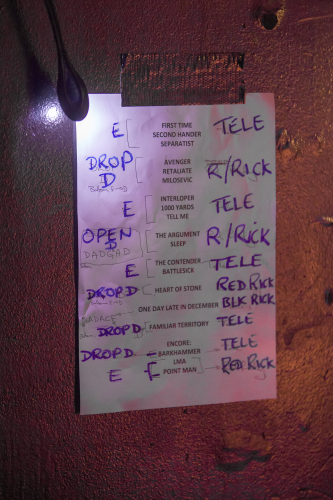 FIRST TIME
E SECOND HANDER TELE
SEPARATIST
DROP AVENGER
D RETALIATE R/RICK
MILOSEVIC
INTERLOPER
E 1000 YARDS TELE
TELL ME
OPEN THE ARGUMENT R/RICK
D SLEEP
DADGAD
E THE CONTENDER TELE
BATTLESICK
DROP D HEART OF STONE RED RICK
ONE DAY LATE IN DECEMBER BLK RICK
DROP D FAMILIAR TERRITORY TELE
ENCORE:
DROP D BARKHAMMER TELE
LMA
E POINT MAN RED RICK